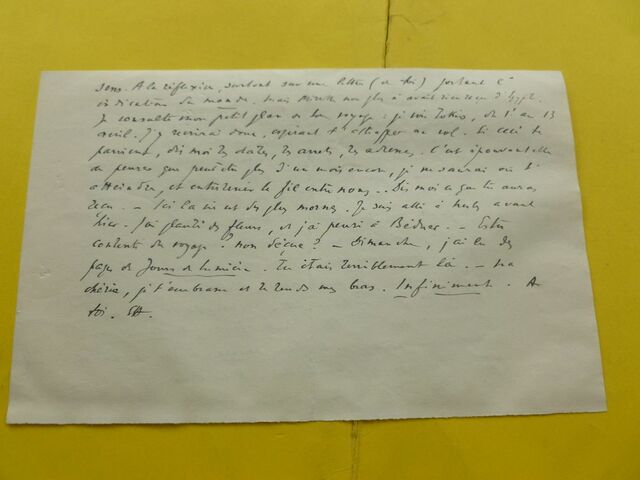 sens. A la réflexion, surtout sur une lettre (de toi) portant l'
indication du monde. mais Mireille non plus n'avait rien reçu d'Egypte.
Je consulte mon petit plan de ton voyage : je vois Tokio, du 1er au 13
avril. J'y écrirai donc, espérant t'attraper au vol. Si ceci te
parvient, dis moi les dates, les arrêts, les adresses. C'est épouvantable
de penser que peut-être plus d'un mois encore, je ne saurai où t'
atteindre, et entretenir le fil entre nous.. Dis moi ce que tu auras
reçu. — Ici la vie est des plus mornes. Je suis allé à avant
hier. J'ai planté des fleurs, et j'ai pensé à — Es-tu
contente du voyage? non déçue? — Dimanche, j'ai lu des
pages de Jours de lumière. Tu étais terriblement là. — ma
chérie, je t'embrasse et te tends mes bras. Infiniment. A
toi.